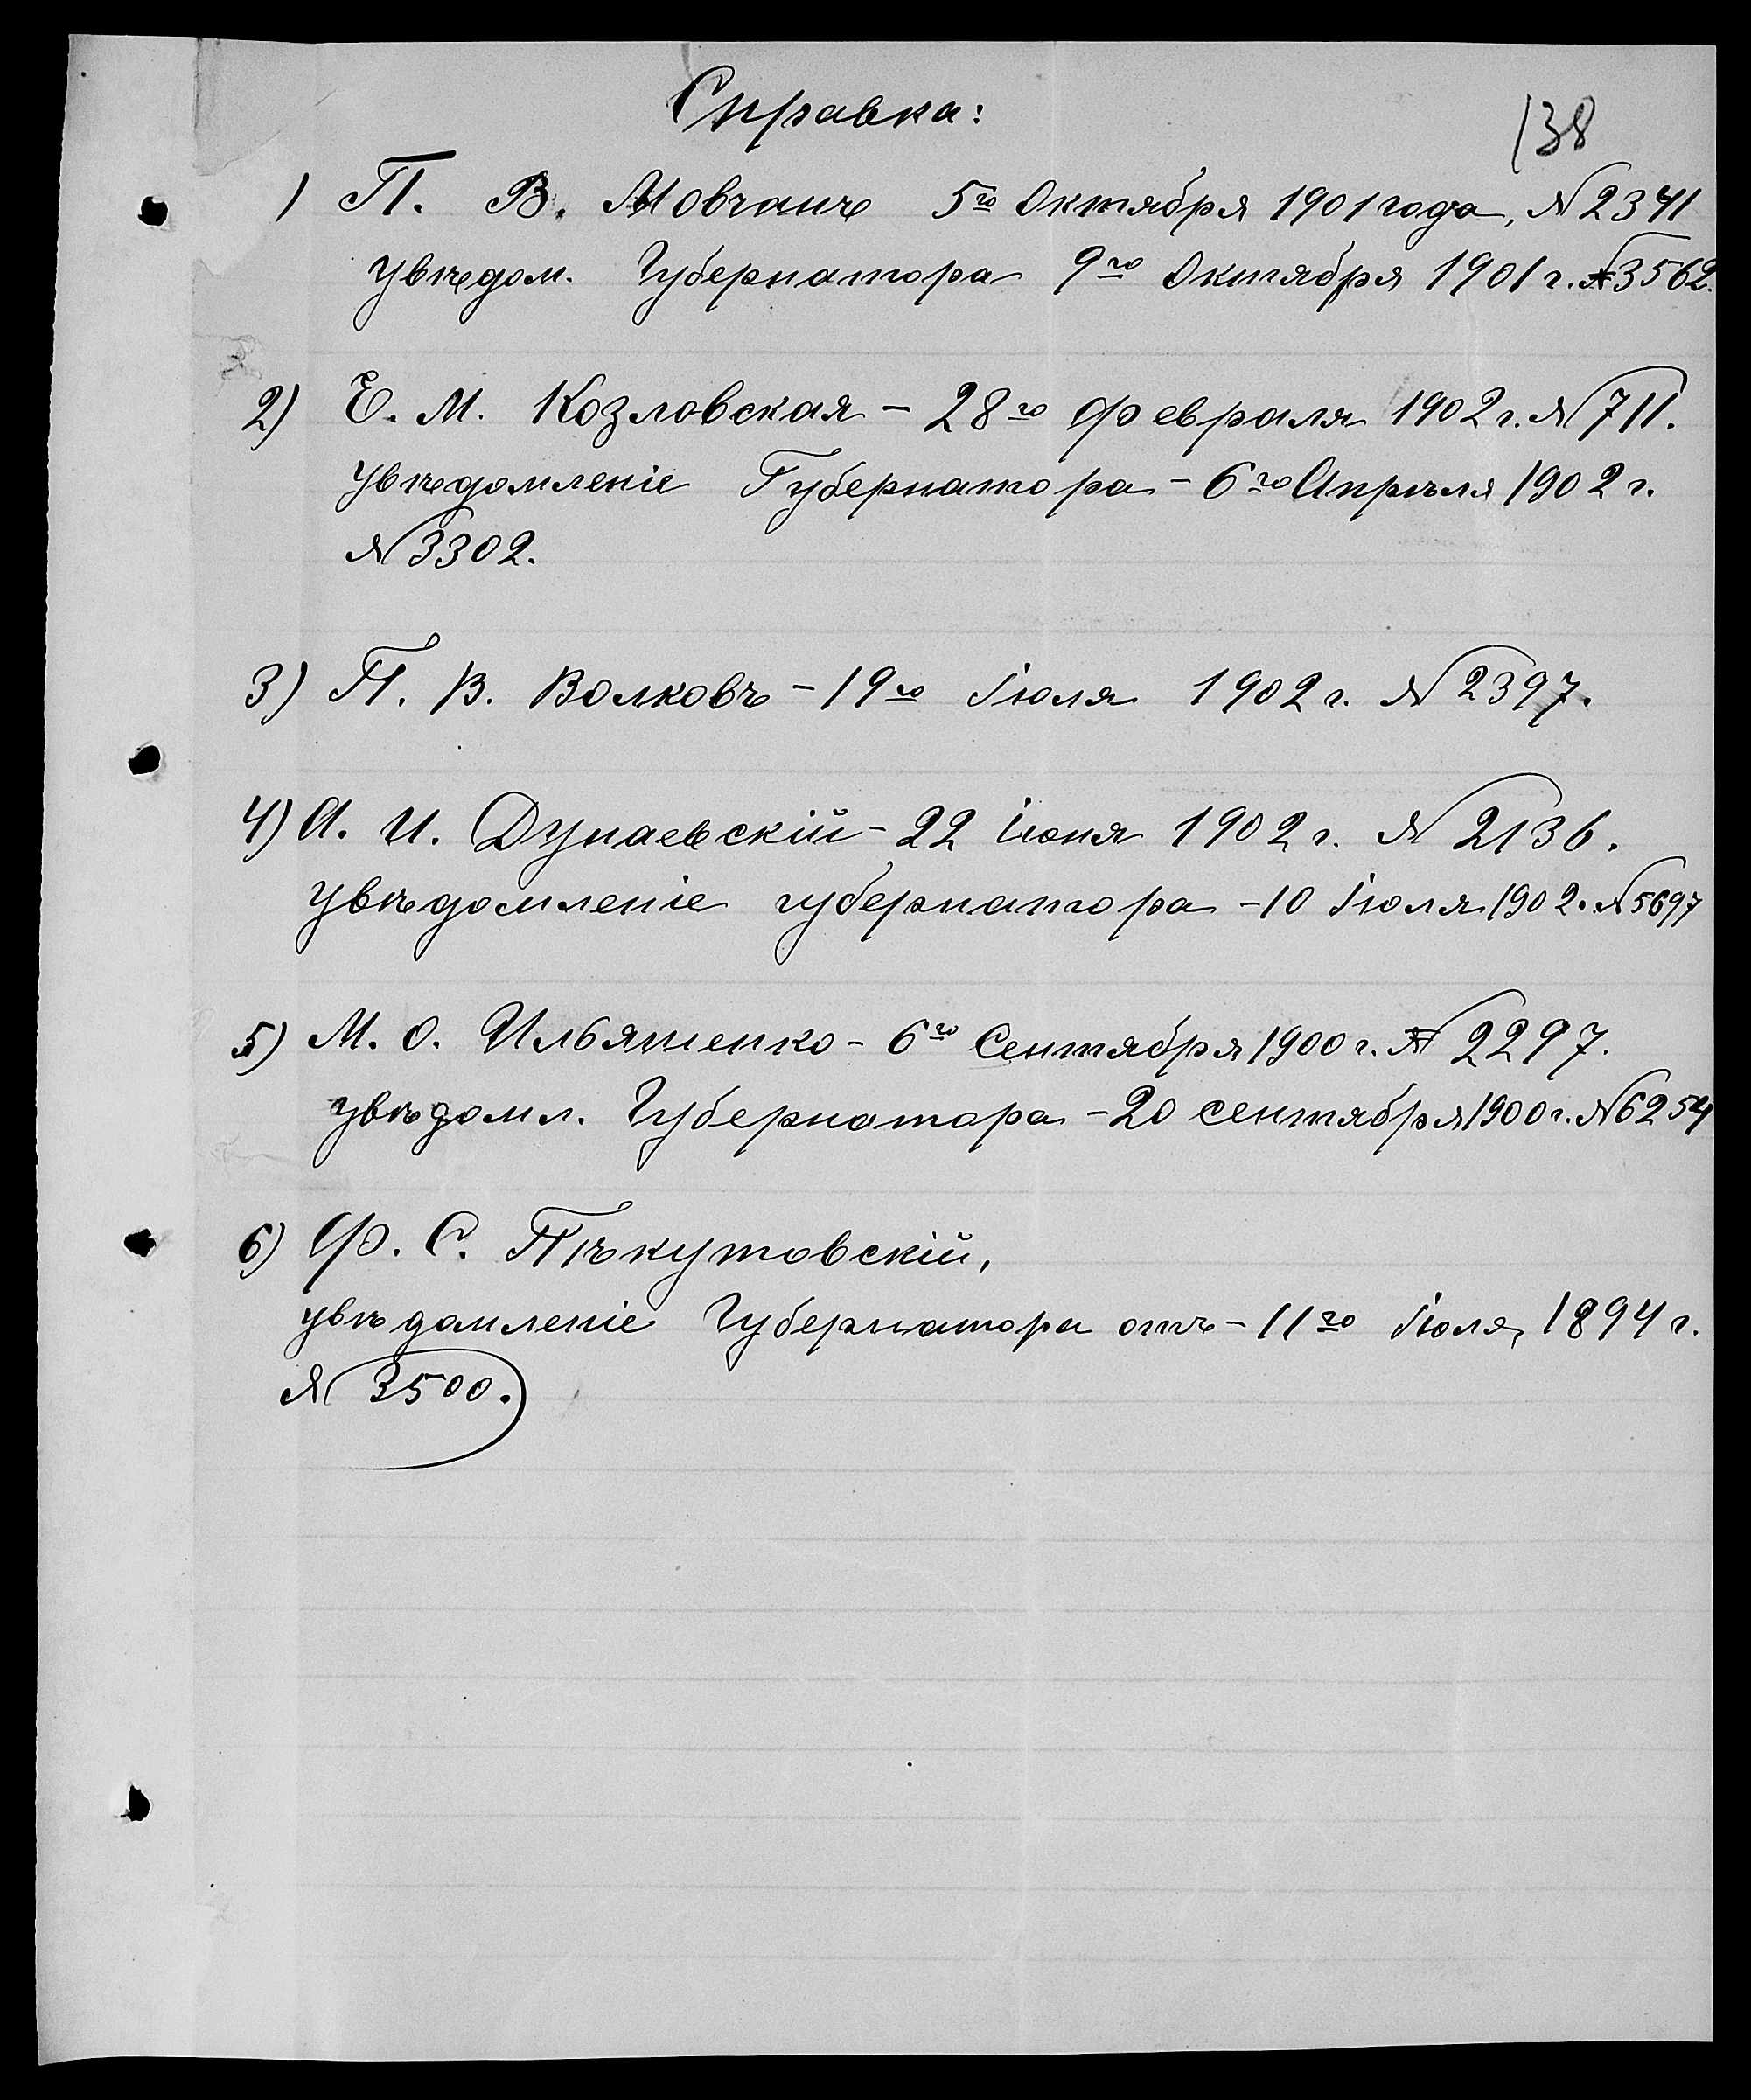 Справка:
138
1 П. В. Мовчанъ 5го Октября 1901 года, № 2341
увѣдом. Губернатора 9го Октября 1901 г. № 3562.
2) Е. М. Козловская - 28го Февраля 1902 г. № 711.
увѣдомленіе Губернатора - 6го Апрѣля 1902 г.
№ 3302.
3) П. В. Волковъ - 19го Іюля 1902 г. № 2397.
4) А. И. Дунаевскій - 22 іюня 1902 г. № 2136.
увѣдомленіе губернатора - 10 Іюля 1902. № 5697
5) М. О. Ильяшенко - 6го Сентября 1900 г. № 2297.
увѣдомл. Губернатора - 20 сентября 1900 г. № 6254
6) Ф. С. Пѣкутовскій,
увѣдомленіе Губернатора отъ - 11го Іюля, 1894 г.
№ 3500.